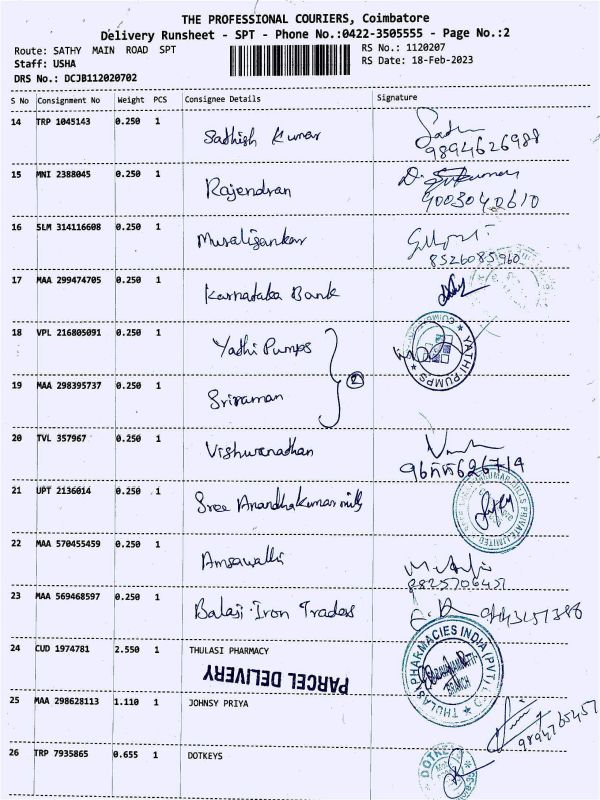 THE PROFESSIONAL COURIERS, Coimbatore
Delivery Runsheet - SPT - Phone No.:0422-3505555 - Page No.:2
Route: SATHY MAIN ROAD SPT
RS No.: 1120207
Staff: USHA
RS Date: 18-Feb-2023
DRS No.: DCJB112020702
S No Consignment No Weight PCS Consignee Details Signature
14 TRP 1045143 0.250 1 Sadhish Kumar
9894626988
15 MNI 2388045 0.250 1 Rajendran
9003040610
16 SLM 314116608 0.250 1 Muraligankar
8526085960
17 MAA 299474705 0.250 1 Karnataka Bank
18 VPL 216805091 0.250 1 Yathi Pumps
YATHI PUMPS
COIMB
2
19 MAA 298395737 0.250 1 Sriraman
20 TVL 357967 0.250 1 Vishwanadhan
21 UPT 2136014 0.250 1 Sree Anandhakumar mills
22 MAA 570455459 0.250 1
8825706451
23 MAA 569468597 0.250 1 Balaji Iron Traders
24 CUD 1974781 2.550 1 THULASI PHARMACY
THULASI PHARMACIES INDIA (PVT) L
BRANCH
PARCEL DELIVERY
25 MAA 298628113 1.110 1 JOHNSY PRIYA
9894765457
26 TRP 7935865 0.655 1 DOTKEYS